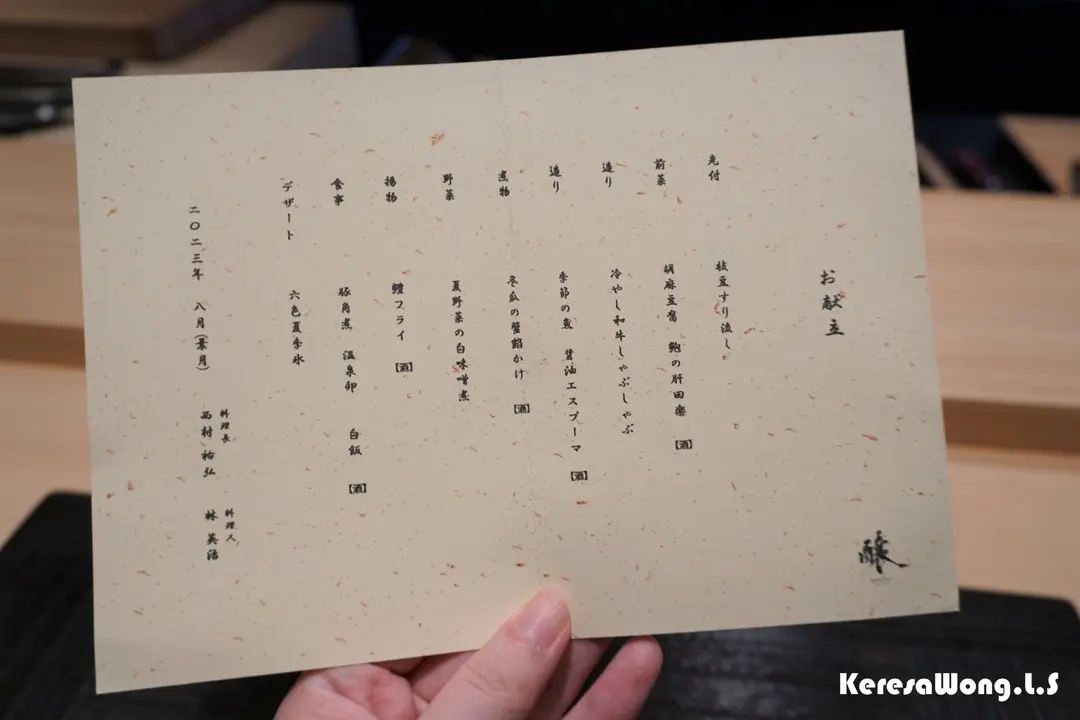 お献立
先付　枝豆すり流し
前菜　胡麻豆腐　鮑の肝田楽　【酒】
造り　冷やし和牛しゃぶしゃぶ
造り　季節の魚　醤油エスプーマ　【酒】
煮物　冬瓜の蟹餡かけ　【酒】
野菜　夏野菜の白味噌煮
揚物　鱧フライ　【酒】
食事　豚角煮　温泉卵　白飯　【酒】
デザート　六色夏季氷
二〇二三年　八月(葉月)
料理長　西村　祐弘　料理人　林　英浩
醸
KeresaWong.L.S